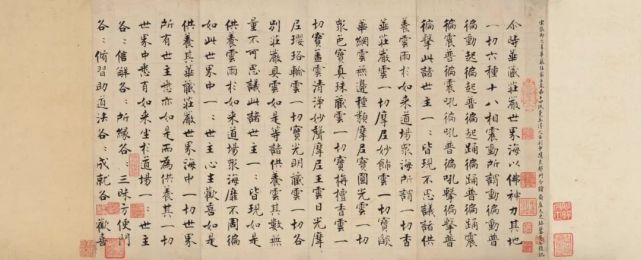 尒時華藏莊嚴世界海以佛神力其地
一切六種十八相震動所謂動徧動普
徧動起徧起普徧起踊徧踊普徧踊震
徧震普徧震吼徧吼普徧吼擊徧擊普
徧擊此諸世主一：皆現不思議諸供
養雲雨於如來道場眾海所謂一切香
華莊嚴雲一切摩尼妙飾雲一切寶燄
華網雲無邊種類摩尼寶圓光雲一切
眾色寶真珠藏雲一切寶栴檀香雲一
切寶蓋雲清淨妙聲摩尼王雲日光摩
尼瓔珞輪雲一切寶光明藏雲一切各
別莊嚴具雲如是等諸供養雲其數無
量不可思議此諸世主一：皆現如是
供養雲雨於如來道場眾海靡不周徧
如此世界中一：世主心生歡喜如是
供養其華藏莊嚴世界海中一切世界
所有世主悉亦如是而為供養其一切
世界中悉有如來坐於道場一：世主
各：信解各：所緣各：三昧方便門
各：修習助道法各：成就各：歡喜